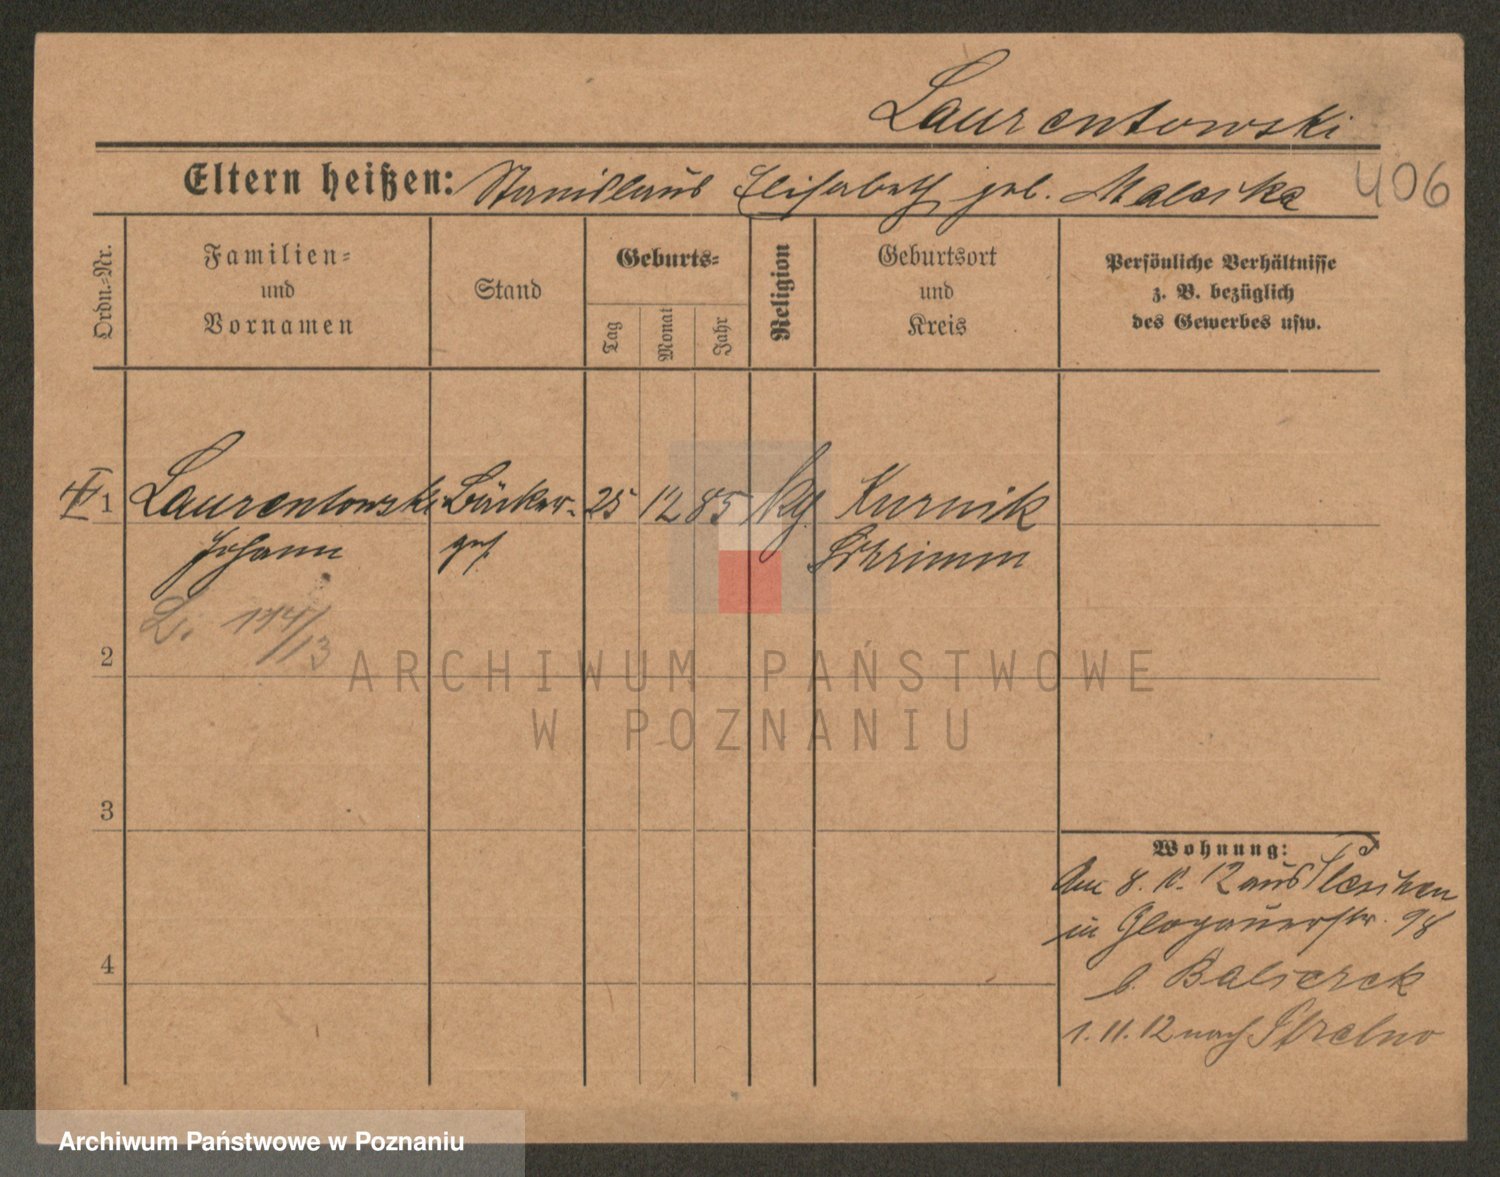 Laurentowski
406
Eltern heißen: Stanislaus Elisabeth geb.
Ordn.-Nr.
Familien-
und
Vornamen
Stand
Geburts-
Tag
Monat
Jahr
Religion
Geburtsort
und
Kreis
Persönliche Verhältnisse
z. B. bezüglich
des Gewerbes usw.
1 Laurentowski Bäcker- 25 12 85 Kurnik
Johann ges. Schrimm
174/13
2
3
4
Wohnung:
Am 8. 10. 12 aus
in Glogauerstr. 98
b. Balcerek
1. 11. 12 nach Strelno
ARCHIWUM PAŃSTWOWE
W POZNANIU
Archiwum Państwowe w Poznaniu